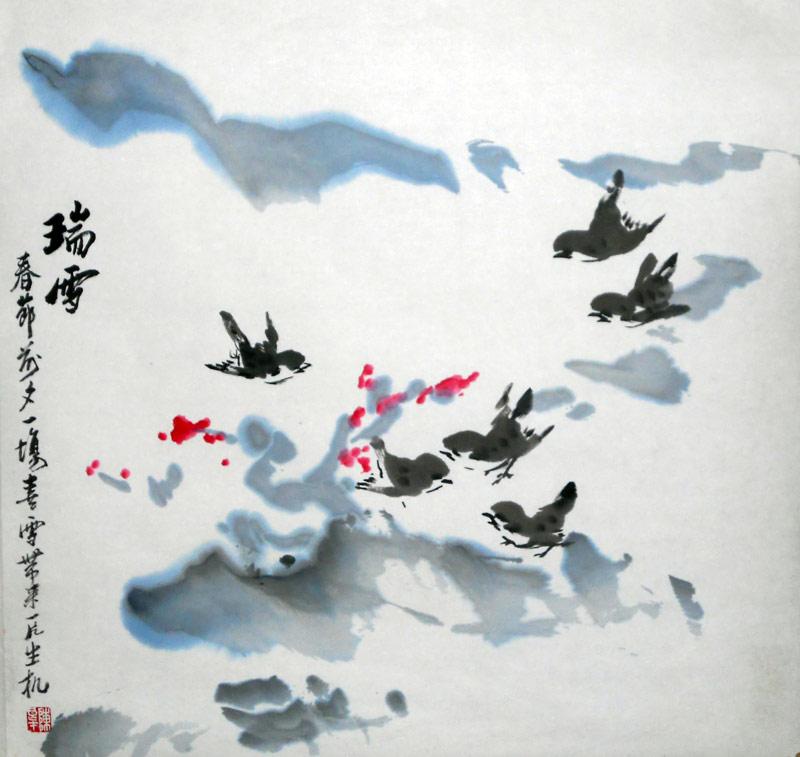 瑞雪
春节前夕一场喜雪带来一片生机